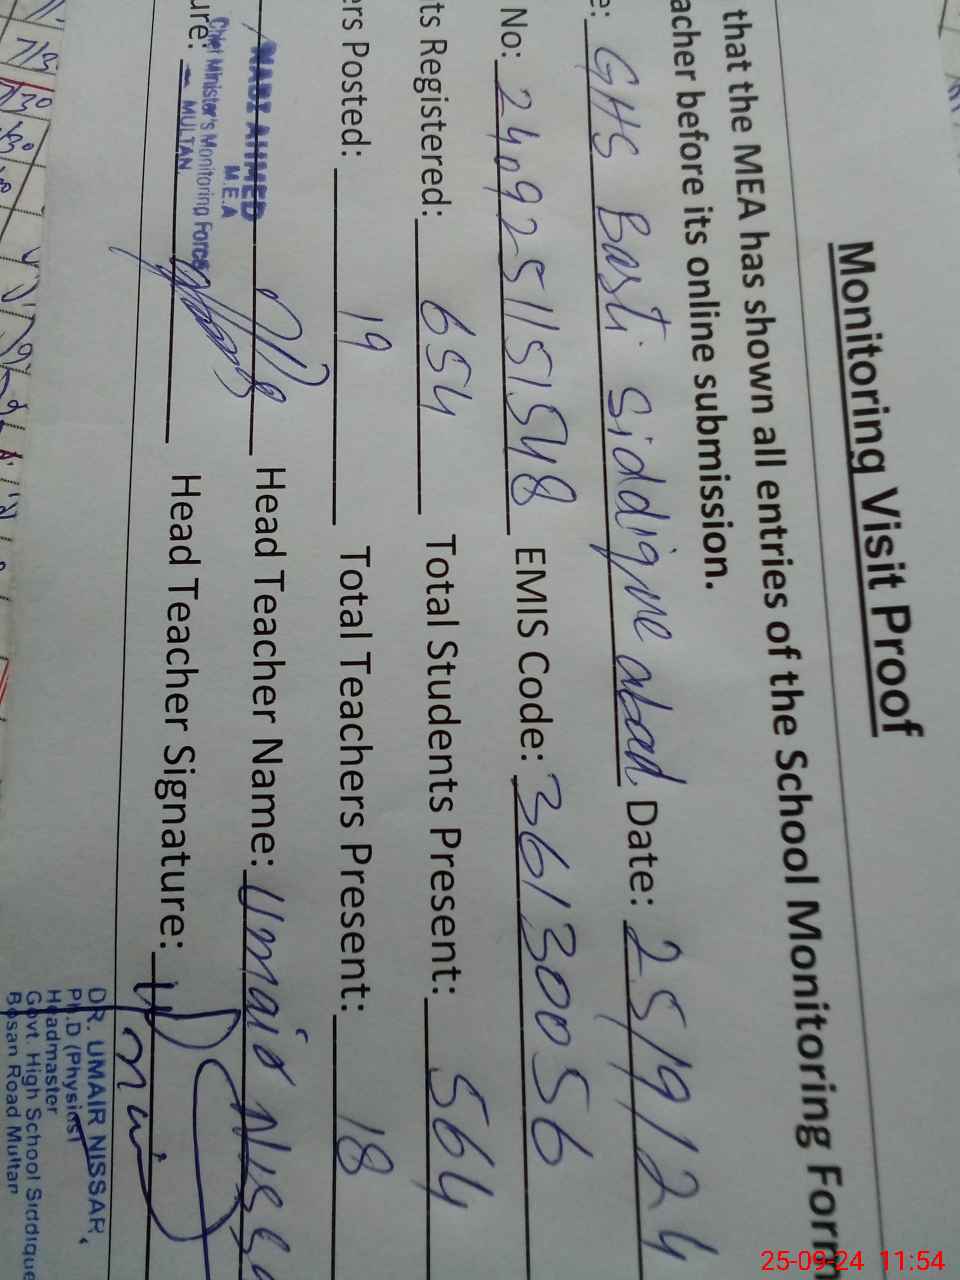 Monitoring Visit Proof
that the MEA has shown all entries of the School Monitoring Form
acher before its online submission.
e: GHS Basti Siddique abad Date: 25/9/24
No: 2409251151548 EMIS Code: 36130056
ts Registered: 654 Total Students Present: 564
ers Posted: 19 Total Teachers Present: 18
NADZ AHMED
M.E.A
Chief Minister's Monitoring Force
MULTAN
Head Teacher Name: Umair Nissa
ure: Head Teacher Signature:
DR. UMAIR NISSAR,
Ph.D (Physics)
Headmaster
Govt. High School Siddique
Bosan Road Multan
25-09-24 11:54